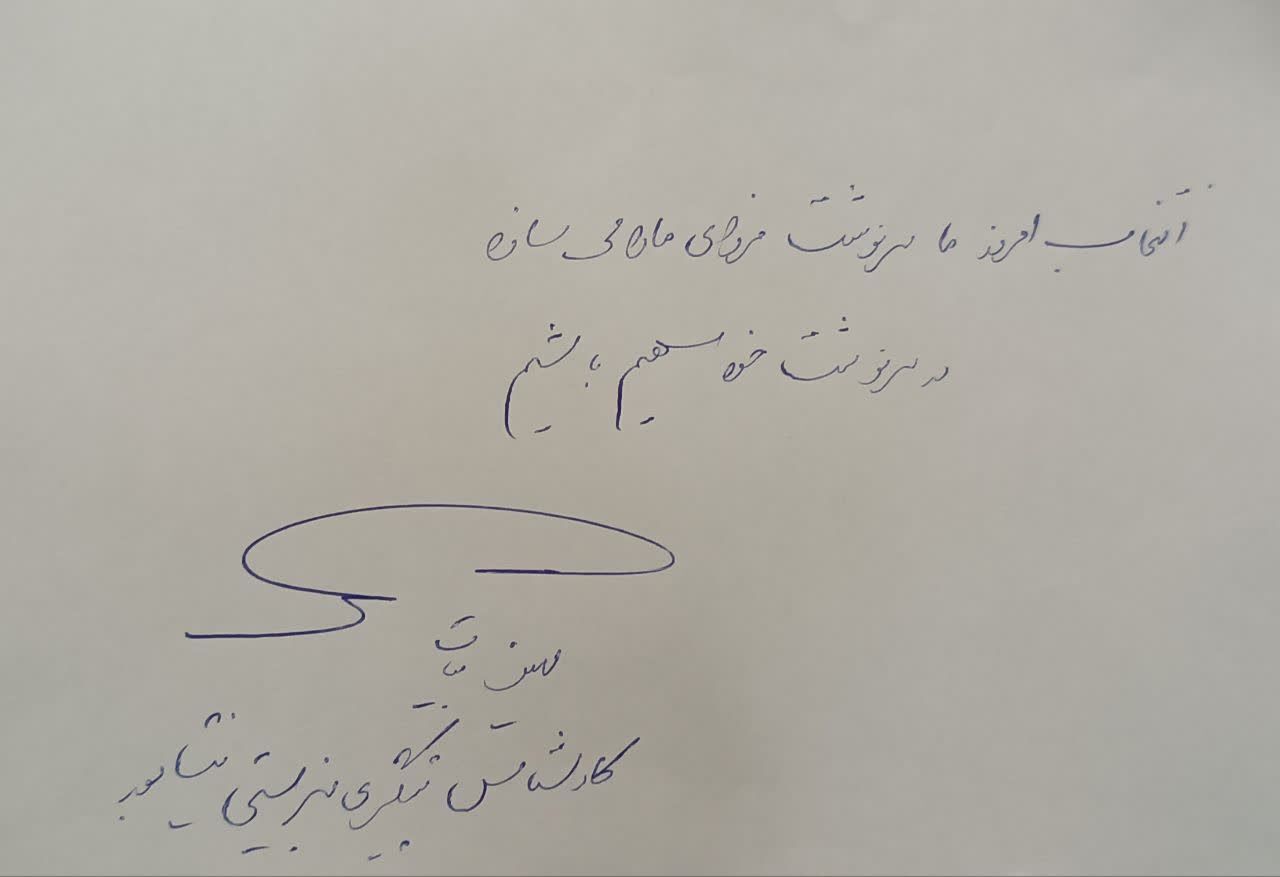 انتخاب امروز ما سرنوشت فردای ما را می سازد
در سرنوشت خود سهیم باشیم
مهین
کارشناس پیشگیری بهزیستی نیشابور